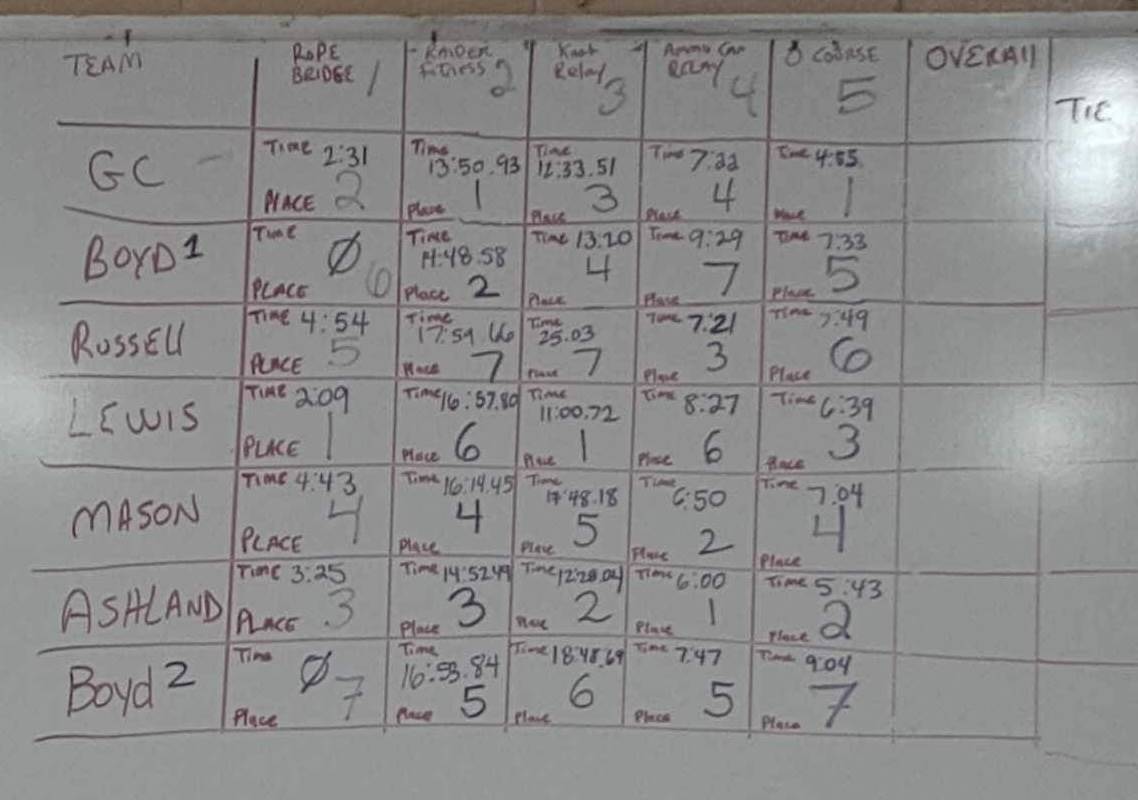 TEAM
ROPE BRIDGE 1
RAIDER fitness 2
Knot Relay 3
Ammo Can RELAY 4
O COURSE 5
OVERAll
TIE
GC
Time 2:31
PlACE 2
Time 13:50.93
Place 1
Time 12:33.51
Place 3
Time 7:22
Place 4
Time 4:55
Place 1
BOYD 1
Time Ø
PLACE 6
Time 14:48.58
Place 2
Time 13:20
Place 4
Time 9:29
Place 7
Time 7:33
Place 5
RUSSEll
Time 4:54
PLACE 5
Time 17:59 66
Place 7
Time 25.03
Place 7
Time 7:21
Place 3
Time 7:49
Place 6
LEWIS
TIME 2:09
PLACE 1
Time 16:57.80
Place 6
Time 11:00.72
Place 1
Time 8:27
Place 6
Time 6:39
Place 3
MASON
TIME 4:43
PLACE 4
Time 16:14.45
Place 4
Time 17:48.18
Place 5
Time 6:50
Place 2
Time 7:04
Place 4
ASHLAND
Time 3:25
PLACE 3
Time 14:52 49
Place 3
Time 12:28.04
Place 2
Time 6:00
Place 1
Time 5:43
Place 2
Boyd 2
Time Ø
Place 7
Time 16:53.84
Place 5
Time 18:48.69
Place 6
Time 7:47
Place 5
Time 9:04
Place 7